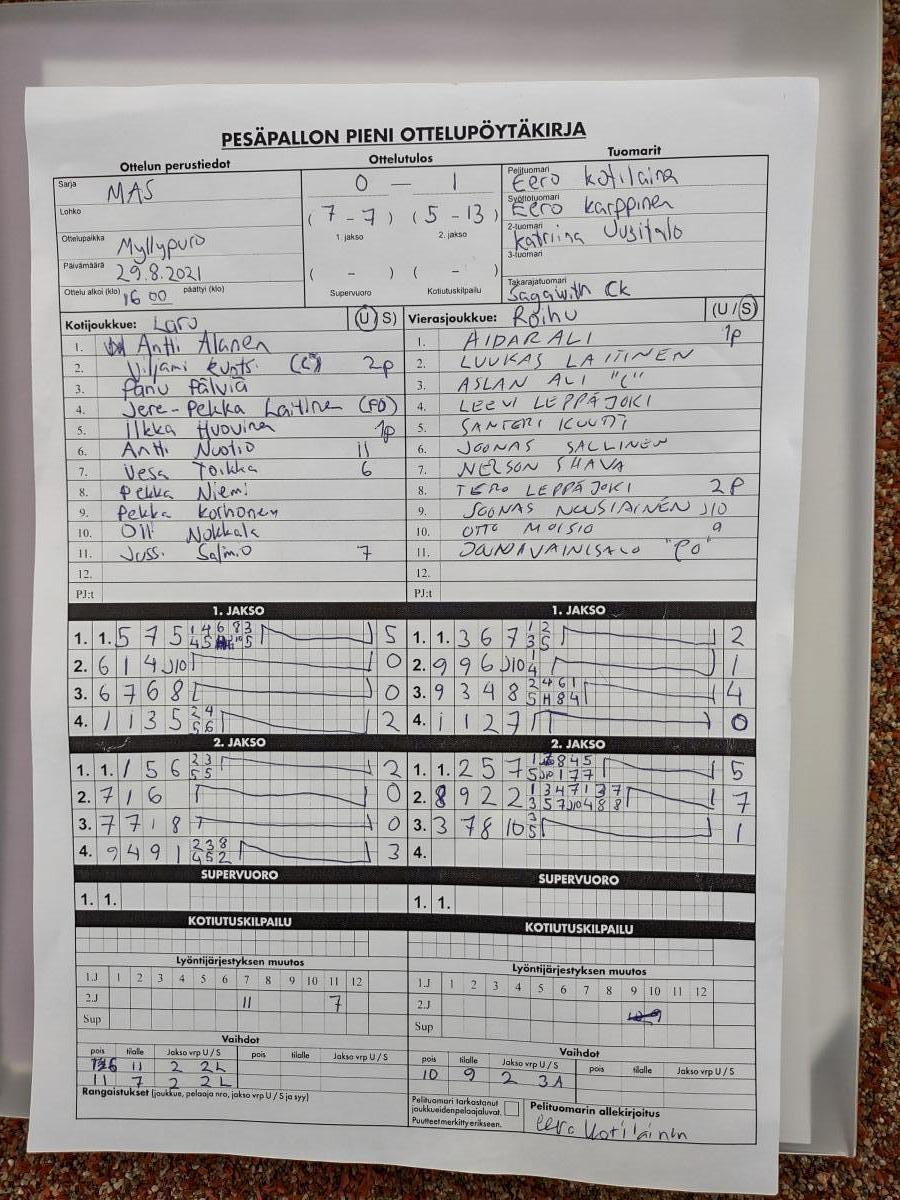 PESÄPALLON PIENI OTTELUPÖYTÄKIRJA
Ottelun perustiedot Ottelutulos Tuomarit
Sarja MAS
0 — 1
Pelituomari Eero Kotilaina
Lohko
(7 - 7) (5 - 13)
Syöttötuomari Eero Karppinen
1. jakso 2. jakso
2-tuomari Katriina Uusitalo
Ottelupaikka Myllypuro
3-tuomari
Päivämäärä 29.8.2021
( - ) ( - )
Ottelu alkoi (klo) 16 00 päättyi (klo)
Supervuoro Kotiutuskilpailu
Takarajatuomari Sagawith CK
Kotijoukkue: Laro (U/S) Vierasjoukkue: Roihu (U/S)
1. Antti Alanen 1. AIDAR ALI 1p
2. Viljami (C) 2p 2. LUUKAS LAITINEN
3. Panu Pälviä 3. ASLAN ALI "C"
4. Jere-Pekka Laitinen (PO) 4. LEEVI LEPPÄJOKI
5. Ilkka Huovinen 1p 5. SANTERI KUUTTI
6. Antti Nuotio 11 6. JOONAS SALLINEN
7. Vesa Toikka 6 7. NELSON SHAVA
8. Pekka Niemi 8. TERO LEPPÄJOKI 2P
9. Pekka Korhonen 9. JOONAS NOUSIAINEN J10
10. Olli Nokkala 10. OTTO MOISIO 9
11. Jussi Salmio 7 11. JOONA VAINISALO "PO"
12. 12.
PJ:t PJ:t
1. JAKSO 1. JAKSO
1. 1. 5 7 5 1 4 6 8 3 4 5 5 5 1. 1. 3 6 7 1 2 3 5 2
2. 6 1 4 J10 0 2. 9 9 6 J10 1 4 1
3. 6 7 6 8 0 3. 9 3 4 8 2 4 6 1 5 11 8 4 4
4. 1 1 3 5 2 4 5 6 2 4. 1 1 2 7 0
2. JAKSO 2. JAKSO
1. 1. 1 5 6 2 3 5 5 2 1. 1. 2 5 7 1 8 4 5 5 J10 1 7 7 5
2. 7 1 6 0 2. 8 9 2 2 1 3 4 7 1 3 7 3 5 7 J10 4 8 8 7
3. 7 7 1 8 0 3. 3 7 8 10 3 5 1
4. 9 4 9 1 2 3 8 4 5 2 3 4.
SUPERVUORO SUPERVUORO
1. 1. 1. 1.
KOTIUTUSKILPAILU KOTIUTUSKILPAILU
Lyöntijärjestyksen muutos Lyöntijärjestyksen muutos
1.J 1 2 3 4 5 6 7 8 9 10 11 12 1.J 1 2 3 4 5 6 7 8 9 10 11 12
2.J 11 7 2.J
Sup Sup
Vaihdot Vaihdot
pois tilalle Jakso vrp U / S pois tilalle Jakso vrp U / S pois tilalle Jakso vrp U / S pois tilalle Jakso vrp U / S
11 2 2L 10 9 2 3A
11 7 2 2L
Rangaistukset (joukkue, pelaaja nro, jakso vrp U / S ja syy)
Pelituomari tarkastanut joukkueidenpelaajaluvat.
Puutteet merkitty erikseen.
Pelituomarin allekirjoitus
Eero Kotilainen